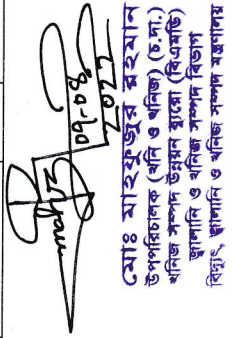 2022
মোঃ মাহফুজুর রহমান
উপপরিচালক (খনি ও খনিজ) (চ.দা.)
খনিজ সম্পদ উন্নয়ন ব্যুরো (বিএমডি)
জ্বালানি ও খনিজ সম্পদ বিভাগ
বিদ্যুৎ, জ্বালানি ও খনিজ সম্পদ মন্ত্রণালয়